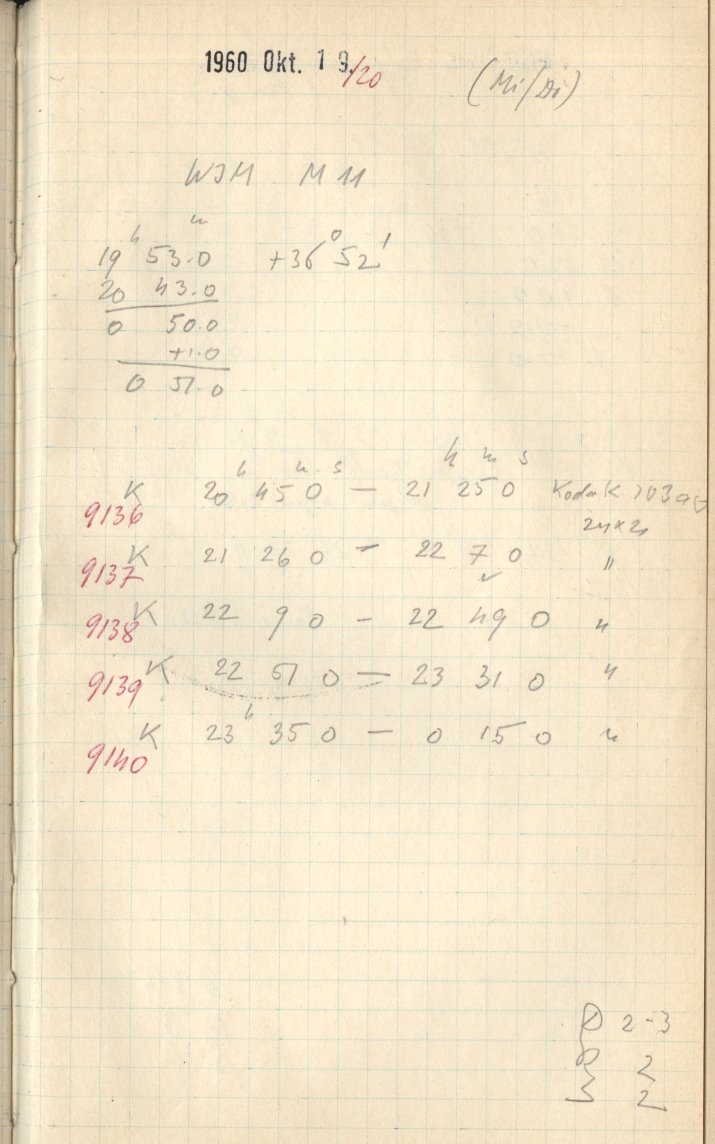 1960 Okt. 19./20 (Mi/Do)
WSM M 11
19 h 53.0 m +36° 52'
20 43.0
0 50.0
+1.0
0 51.0
h m s h m s
9136 K 20 45 0 — 21 25 0 Kodak 103a
24x24
9137 K 21 26 0 — 22 7 0 "
9138 K 22 9 0 — 22 49 0 "
9139 K 22 51 0 — 23 31 0 "
9140 K 23 h 35 0 — 0 15 0 "
2-3
2
2